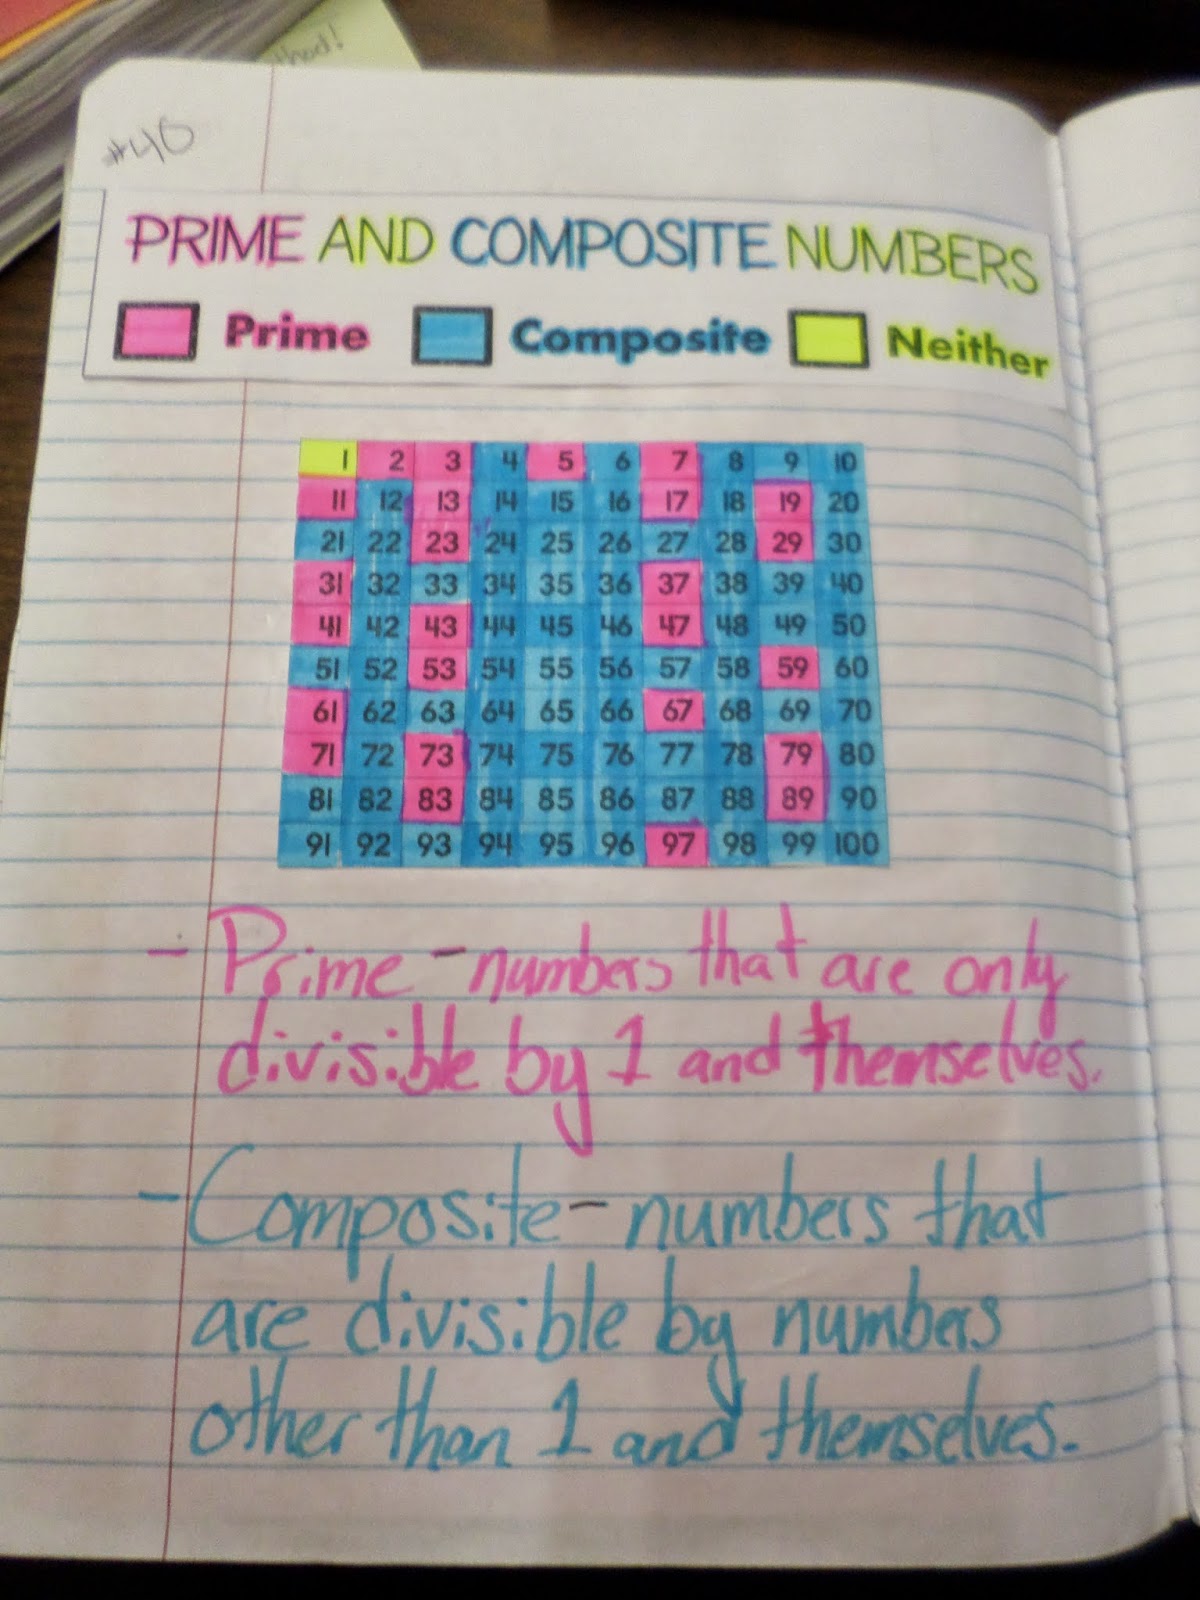 thod!
#40
PRIME AND COMPOSITE NUMBERS
Prime Composite Neither
1 2 3 4 5 6 7 8 9 10
11 12 13 14 15 16 17 18 19 20
21 22 23 24 25 26 27 28 29 30
31 32 33 34 35 36 37 38 39 40
41 42 43 44 45 46 47 48 49 50
51 52 53 54 55 56 57 58 59 60
61 62 63 64 65 66 67 68 69 70
71 72 73 74 75 76 77 78 79 80
81 82 83 84 85 86 87 88 89 90
91 92 93 94 95 96 97 98 99 100
- Prime - numbers that are only
divisible by 1 and themselves.
- Composite - numbers that
are divisible by numbers
other than 1 and themselves.